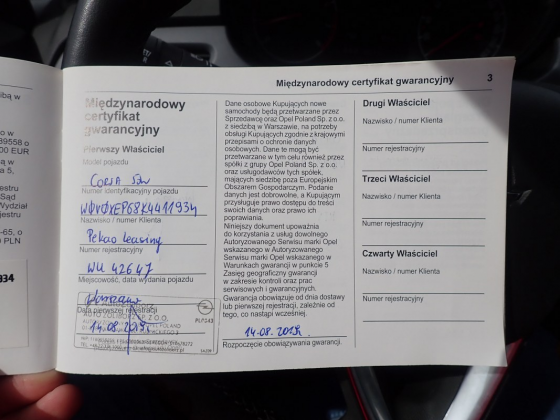 Międzynarodowy certyfikat gwarancyjny 3
Międzynarodowy
certyfikat
gwarancyjny
Pierwszy Właściciel
Model pojazdu
CORSA 5dr
Numer identyfikacyjny pojazdu
W0V0XEP68K4411934
Nazwisko / numer Klienta
Pekao Leasing
Numer rejestracyjny
WU 42647
Miejscowość, data wydania pojazdu
Warszawa
Data pierwszej rejestracji
14.08.2019r.
Dane osobowe Kupujących nowe
samochody będą przetwarzane przez
Sprzedawcę oraz Opel Poland Sp. z o.o.
z siedzibą w Warszawie, na potrzeby
obsługi Kupujących zgodnie z krajowymi
przepisami o ochronie danych
osobowych. Dane te mogą być
przetwarzane w tym celu również przez
spółki z grupy Opel Poland Sp. z o.o.
oraz usługodawców tych spółek,
mających siedzibę poza Europejskim
Obszarem Gospodarczym. Podanie
danych jest dobrowolne, a Kupującym
przysługuje prawo dostępu do treści
swoich danych oraz prawo ich
poprawiania.
Niniejszy dokument upoważnia
do korzystania z usług dowolnego
Autoryzowanego Serwisu marki Opel
wskazanego w Autoryzowanego
Serwisu marki Opel wskazanego w
Warunkach gwarancji w punkcie 5
Zasięg geograficzny gwarancji
w zakresie kontroli oraz prac
serwisowych i gwarancyjnych.
Gwarancja obowiązuje od dnia dostawy
lub pierwszej rejestracji, zależnie od
tego, co nastąpi wcześniej.
14.08.2019r.
Rozpoczęcie obowiązywania gwarancji.
Drugi Właściciel
Nazwisko / numer Klienta
Numer rejestracyjny
Trzeci Właściciel
Nazwisko / numer Klienta
Numer rejestracyjny
Czwarty Właściciel
Nazwisko / numer Klienta
Numer rejestracyjny